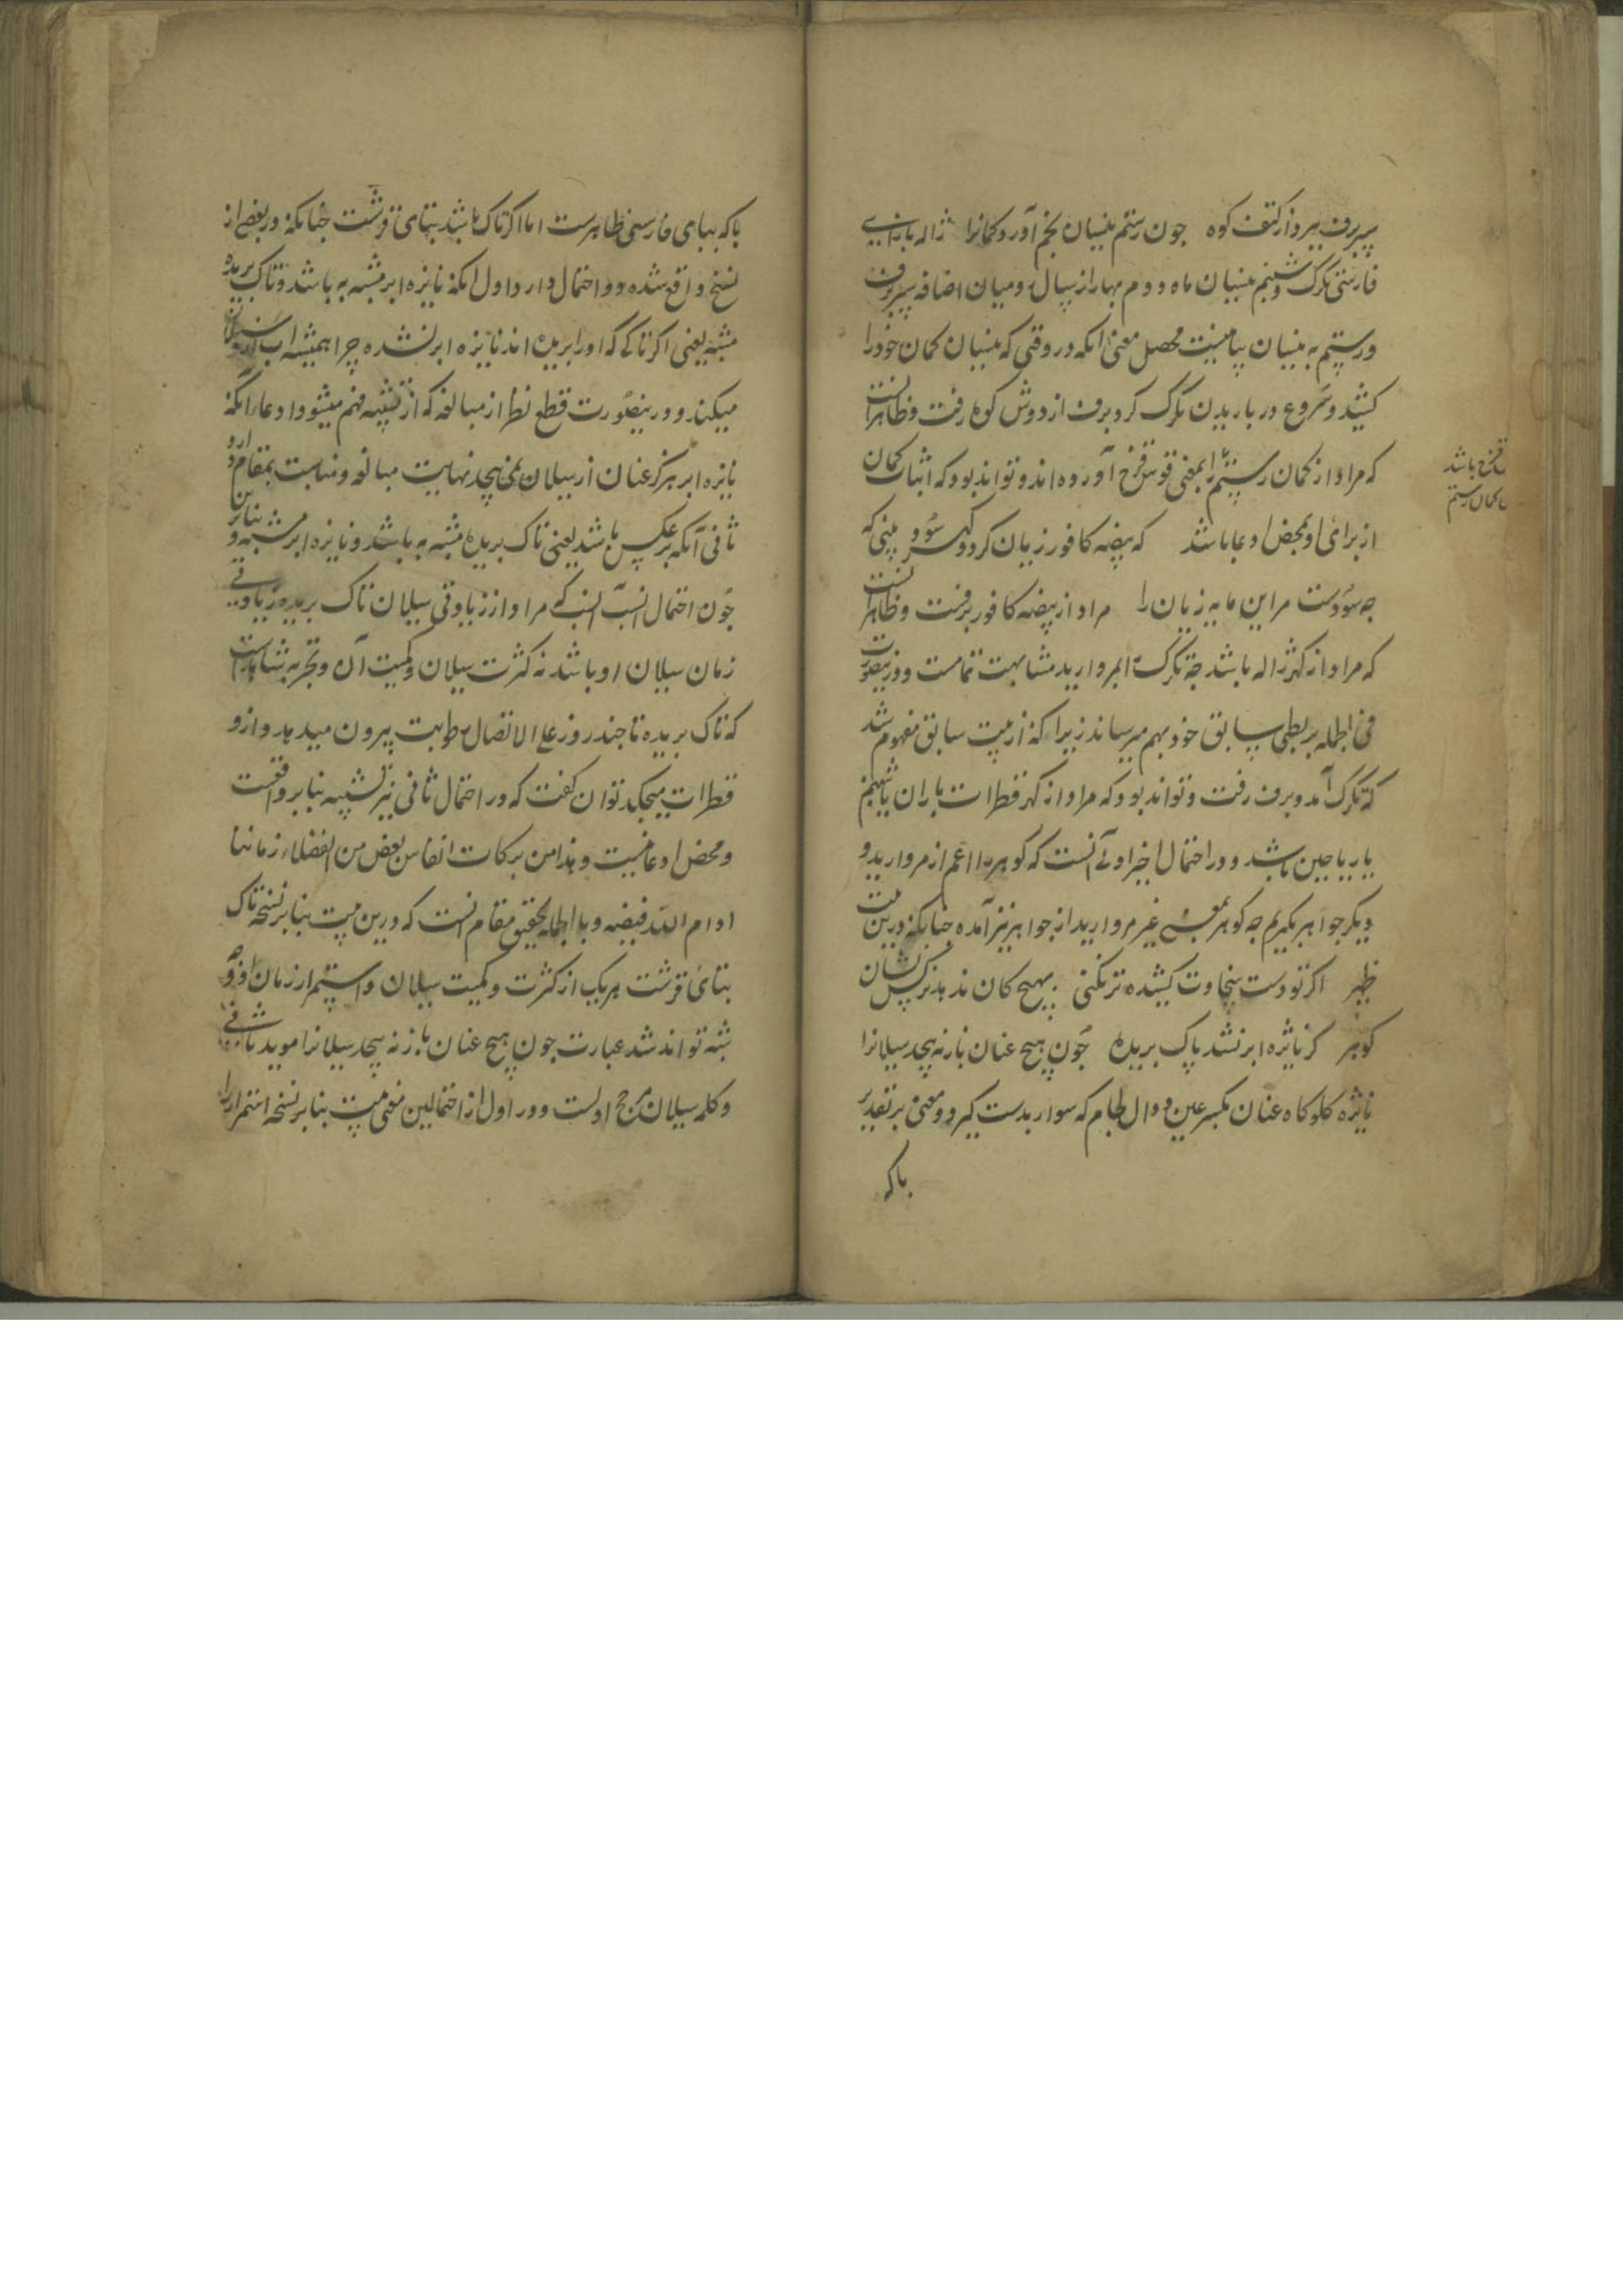 سپر برف ببرد از کتف کوه جون رستم نیسان بخم آورد کمانرا ژاله بارانی
فارسی تکرک و شبنم نیسان ماه دوم بهار از سال رومیان اضافه سپر ببرف
و رستم به نیسان بیانیست محصل معنی آنکه در وقتی که نیسان کمان خود را
کشید و شروع در باریدن تکرک کرد برف از دوش کوه رفت و ظاهر آنست
که مراد از کمان رستم را بمعنی قوس قزح آورده اند و تواند بود که اثبات کمان
از برای او بمحض ادعا باشد که بیضه کافور زیان کرد و کهر سود بینی که
جه سودست مر این مایه زیان را مراد از بیضه کافور برفست و ظاهر آنست
که مراد از کهر ژاله باشد جه تکرک را بمروارید مشابهت تمامست و درینصورت
فی الجمله بربطی سابق خود بهم میرساند زیرا که از بیت سابق مفهوم شد
که تکرک آمد و برف رفت و تواند بود که مراد از کهر قطرات باران یا شبنم
یا ریاحین باشد و در احتمال اخیر اولی آنست که کوهر را اعم از مروارید و
دیکر جواهر بکیریم جه کوهر بمعنی غیر مروارید از جواهر نیز آمده جنانکه درین بیت
ظهیر اکر تو دست سخاوت کشیده تر نکنی بهیچ کان ندهد بر کس نشان
کوهر کر نایژه ابر نشد پاک بریده جون هیچ عنان باز نه پیچد سیلانرا
نایژه کلوکاه عنان بکسر عین دوال لجام که سوار بدست کیرد و معنی بر تقدیر
باکه
قزح باشد
کمان رستم
باکه ببای فارسی ظاهرست اما اکر تاک باشد بتای قرشت جنانکه در بعض از
نسخ واقع شده دو احتمال دارد اول آنکه نایژه ابر مشبه به باشد و تاک بریده
مشبه یعنی اکر تاکی که او را بریده اند نایژه ابر نشده چرا همیشه آب ازو سیلان
میکند و درینصورت قطع نظر از مبالغه که از تشبیه فهم میشود ادعاء آنکه
نایژه ابر هرکز عنان از سیلان نمی پیچد نهایت مبالغه و مناسبت بمقام دارد
ثانی آنکه برعکس باشد یعنی تاک بریده مشبه به باشد و نایژه ابر مشبه و بنابرین
جون احتمال انسب آنست که مراد از زیادتی سیلان تاک بریده زیادتی
زمان سیلان او باشد نه کثرت سیلان و کمیت آن و تجربه شاهد است
که تاک بریده تا جند روز علی الاتصال رطوبت بیرون میدهد و ازو
قطرات میچکد توان کفت که در احتمال ثانی نیز تشبیه بنابر واقعست
و محض ادعا نیست و هذا من برکات انفاس بعض من الفضلاء زماننا
ادام الله فیضه و بالجمله تحقیق مقام آنست که درین بیت بنابر نسخه تاک
بتای قرشت هریک از کثرت و کمیت سیلان و استمرار زمان او وجه
شبه تواند شد عبارت جون هیچ عنان باز نه پیچد سیلانرا موید ثانی
و کلمه سیلان مرجح اولست و در اول از احتمالین معنی بیت بنابر نسخه استمرار